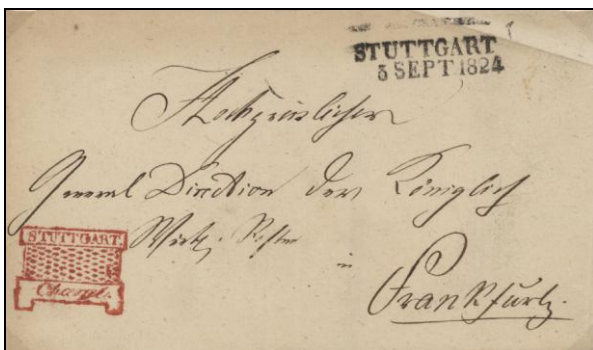 STUTTGART
5 SEPT.1824
Hochpreislicher
General Direction der Königlich
Württ. Posten
in
Frankfurt.
STUTTGART.
Chargé.